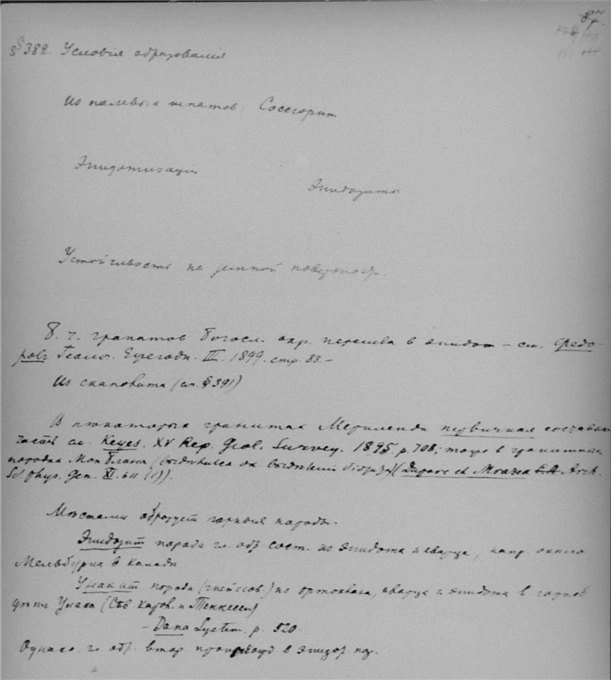 § 382. Условія образованія
Из полевых шпатов: Соссюрит
Эпидотизація
Эпидозиты
Устойчивость на земной поверхност.
Б. ч. гранатов богосл. окр. перешла в эпидот — см. Федо-
ров Геолог. Ежегодн. III. 1899. стр. 83.—
Из скаполита (см. § 391)
В некоторых гранитах Мериленда первичная составная
часть см. Keyes. XV Rep. Geol. Survey. 1895 p. 708; тоже в гранитных
породах Монблана, (Duparc et Mrazec Arch.
Sc. phys. Gen. XI. 611 (1)).
Местами образует горныя породы.
Эпидозит порода гл. обр. сост. из эпидота и кварца, напр. около
Мельбурна в Канаде
Унакит порода (гнейссов) из ортоклаза, кварца и эпидота в горной
цепи Унака (Сѣв. Карол. и Теннесси)
— Dana System. p. 520.
Однако, гл. обр. втор.